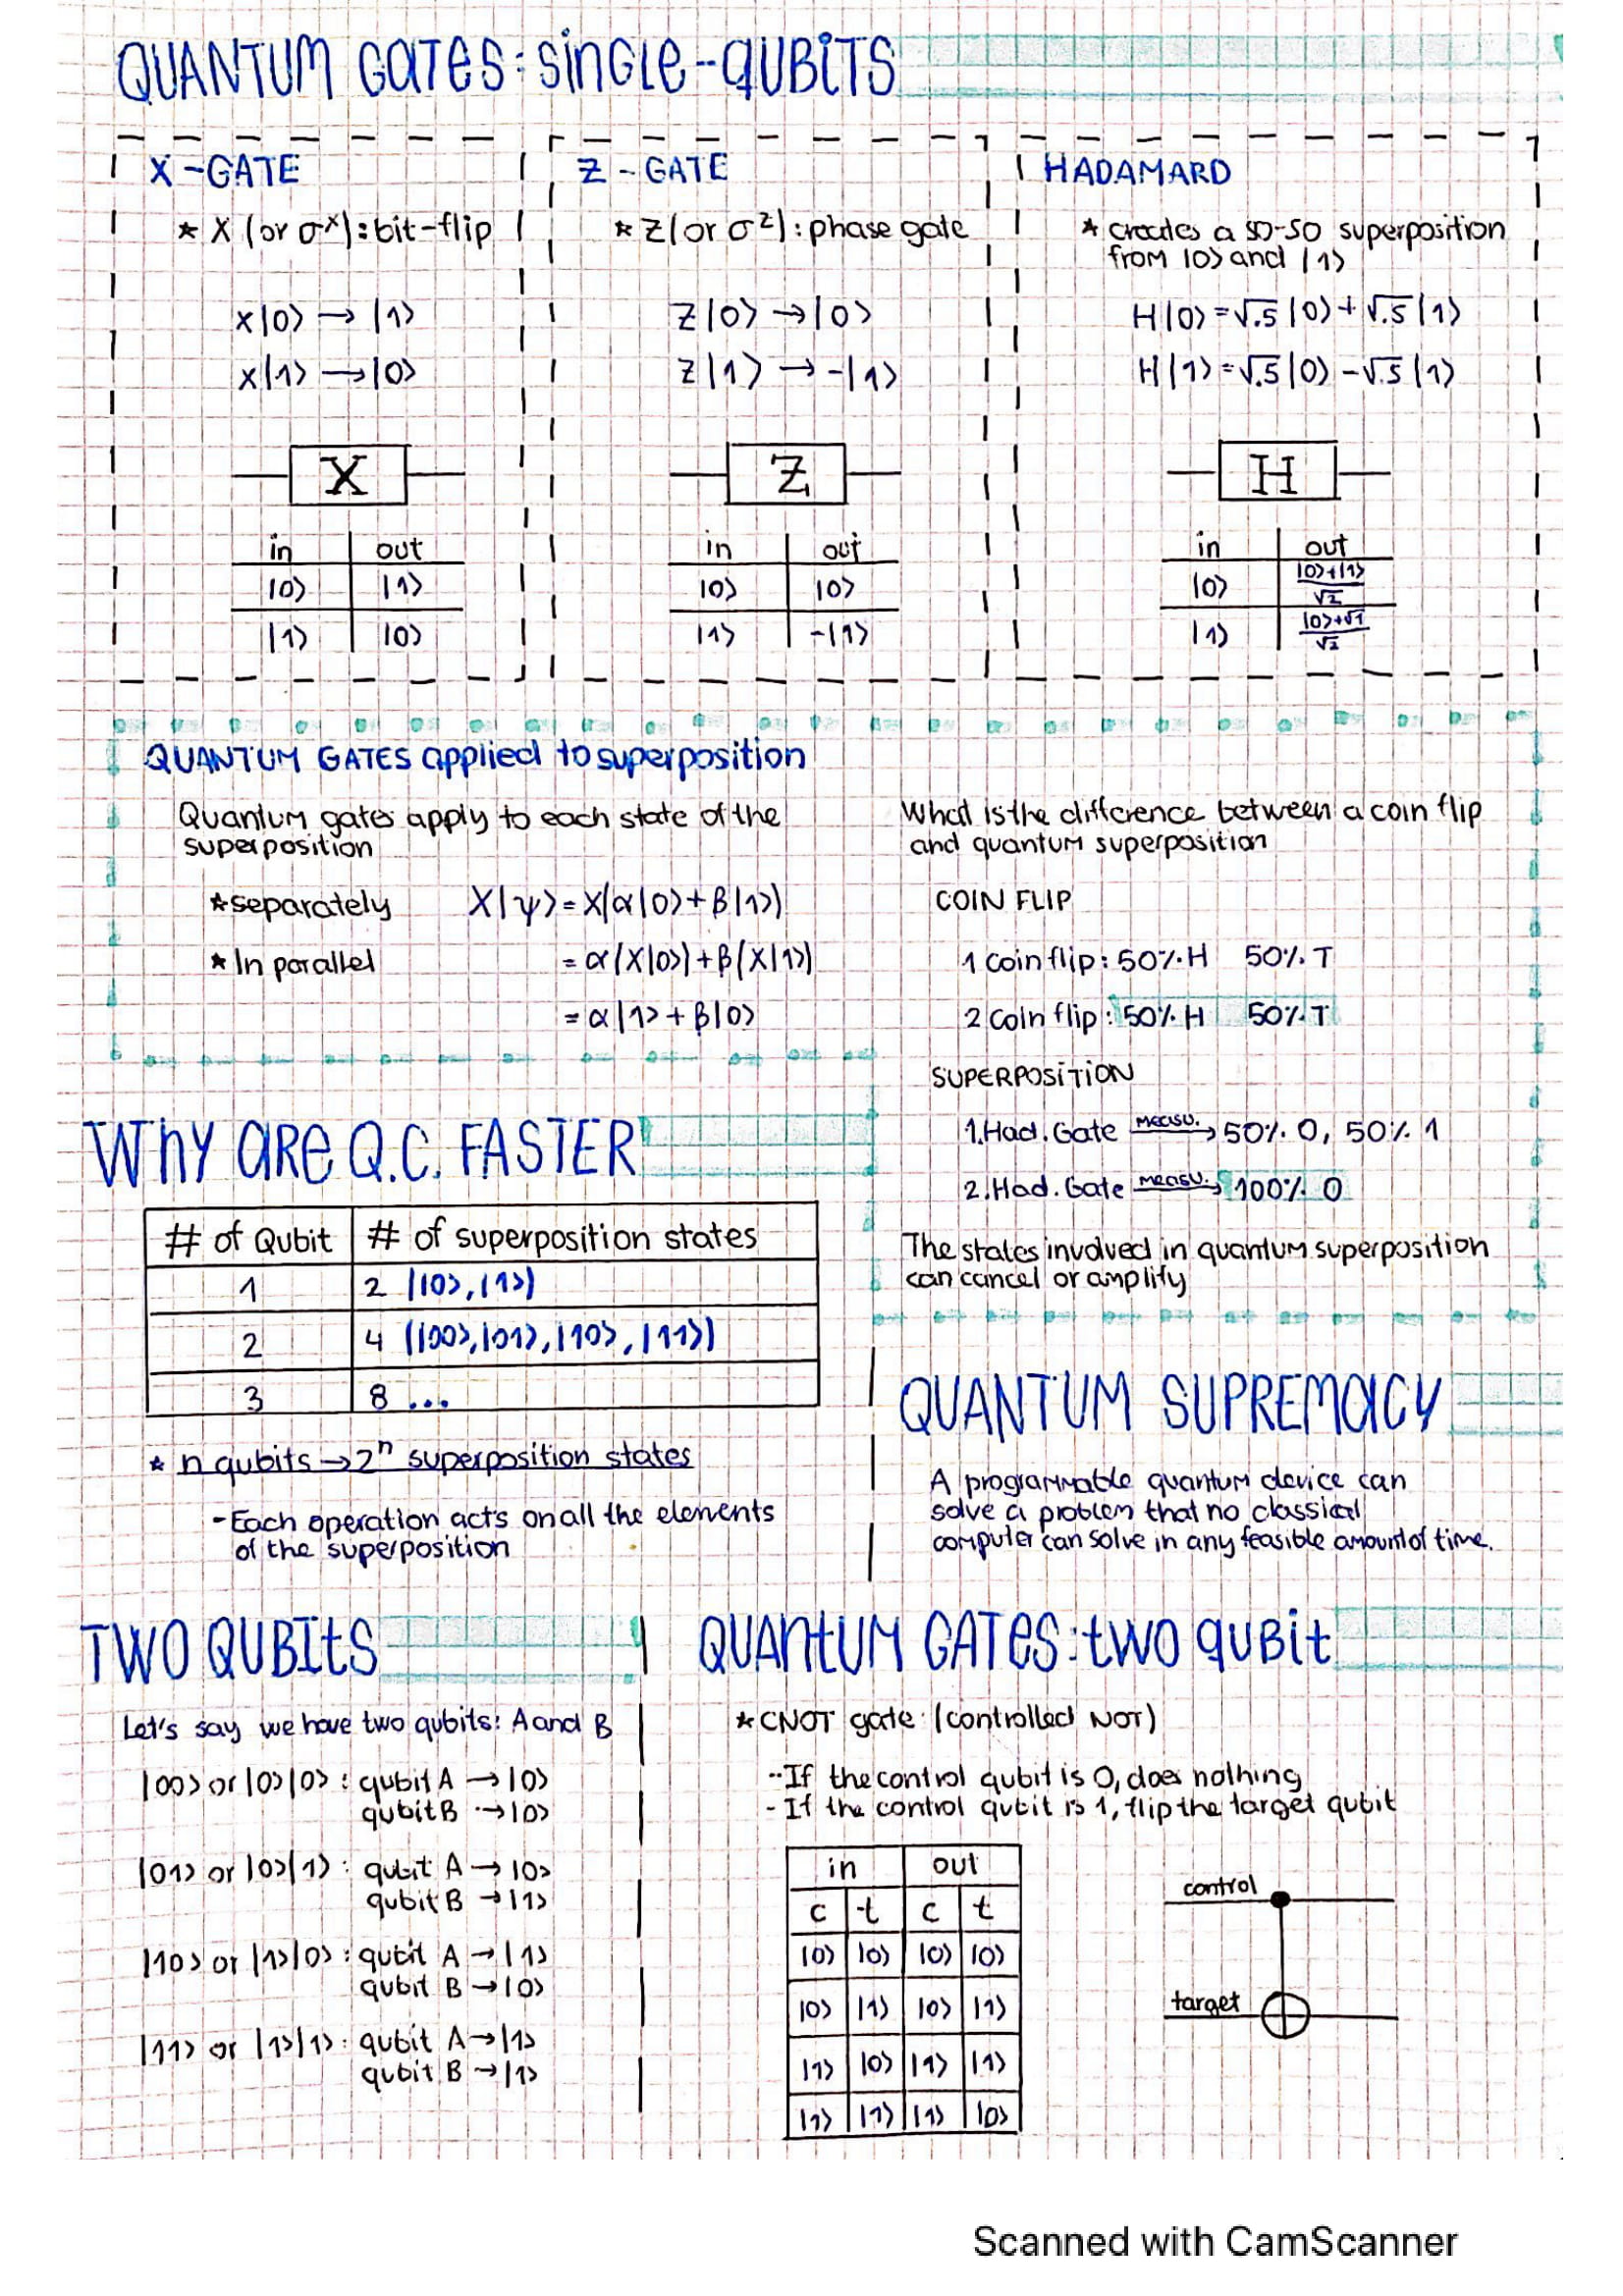 QUANTUM GATES: SINGLE-QUBITS
X-GATE
* X (or σˣ): bit-flip
X|0⟩ → |1⟩
X|1⟩ → |0⟩
X
in out
|0⟩ |1⟩
|1⟩ |0⟩
Z-GATE
* Z (or σᶻ): phase gate
Z|0⟩ → |0⟩
Z|1⟩ → -|1⟩
Z
in out
|0⟩ |0⟩
|1⟩ -|1⟩
HADAMARD
* creates a 50-50 superposition
from |0⟩ and |1⟩
H|0⟩ = √.5 |0⟩ + √.5 |1⟩
H|1⟩ = √.5 |0⟩ - √.5 |1⟩
H
in out
|0⟩ |0⟩+|1⟩/√2
|1⟩ |0⟩+√1/√2
QUANTUM GATES applied to superposition
Quantum gates apply to each state of the
superposition
* separately X|ψ⟩ = X(α|0⟩ + β|1⟩)
* In parallel = α(X|0⟩) + β(X|1⟩)
= α|1⟩ + β|0⟩
What is the difference between a coin flip
and quantum superposition
COIN FLIP
1 coin flip: 50% H 50% T
2 coin flip: 50% H 50% T
SUPERPOSITION
1. Had. Gate measu.→ 50% 0, 50% 1
2. Had. Gate measu.→ 100% 0
The states involved in quantum superposition
can cancel or amplify
WHY ARE Q.C. FASTER
# of Qubit # of superposition states
1 2 (|0⟩,|1⟩)
2 4 (|00⟩,|01⟩,|10⟩,|11⟩)
3 8 ...
* n qubits → 2ⁿ superposition states
- Each operation acts on all the elements
of the superposition
QUANTUM SUPREMACY
A programmable quantum device can
solve a problem that no classical
computer can solve in any feasible amount of time.
TWO QUBITS
Let's say we have two qubits: A and B
|00⟩ or |0⟩|0⟩ : qubit A → |0⟩
qubit B → |0⟩
|01⟩ or |0⟩|1⟩ : qubit A → |0⟩
qubit B → |1⟩
|10⟩ or |1⟩|0⟩ : qubit A → |1⟩
qubit B → |0⟩
|11⟩ or |1⟩|1⟩ : qubit A → |1⟩
qubit B → |1⟩
QUANTUM GATES: two qubit
* CNOT gate: (controlled NOT)
- If the control qubit is 0, does nothing
- If the control qubit is 1, flip the target qubit
in out
c t c t
|0⟩ |0⟩ |0⟩ |0⟩
|0⟩ |1⟩ |0⟩ |1⟩
|1⟩ |0⟩ |1⟩ |1⟩
|1⟩ |1⟩ |1⟩ |0⟩
control
target
Scanned with CamScanner